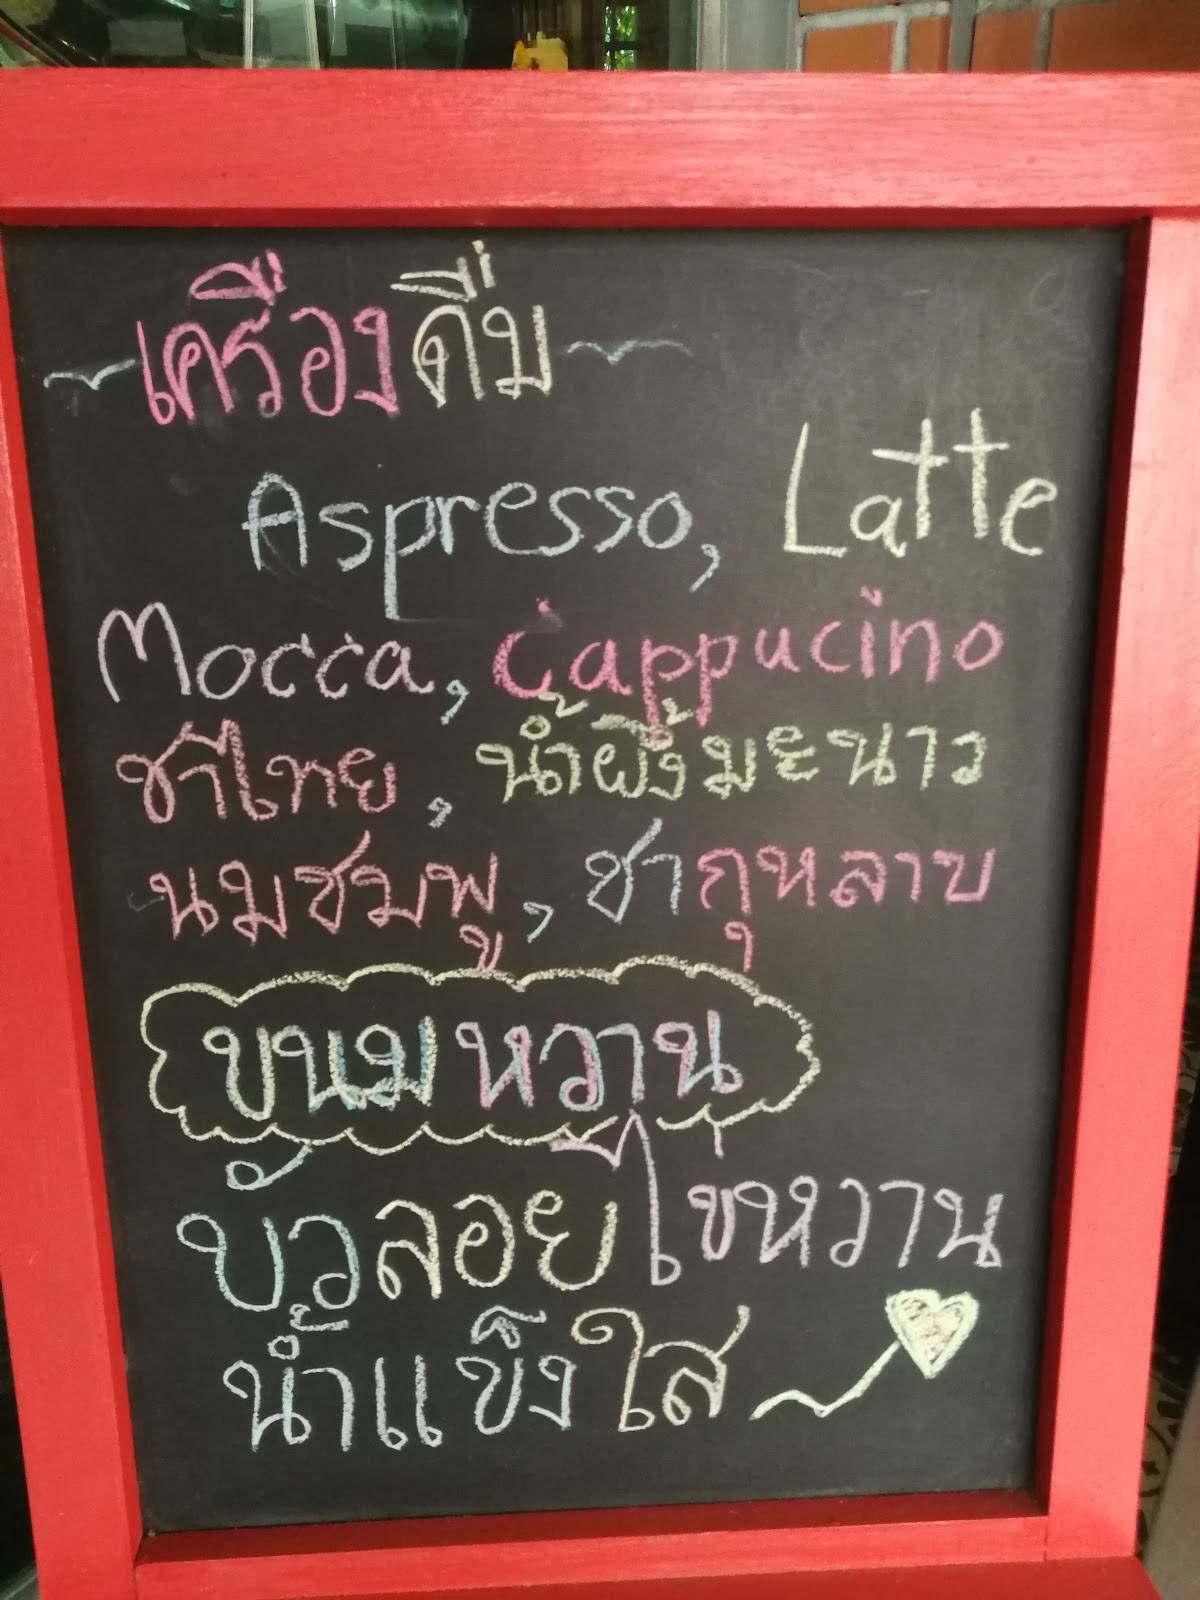 เครื่องดื่ม
Aspresso, Latte
Mocca, Cappucino
ชาไทย, น้ำผึ้งมะนาว
นมชมพู, ชากุหลาบ
ขนมหวาน
บัวลอยไข่หวาน
น้ำแข็งใส